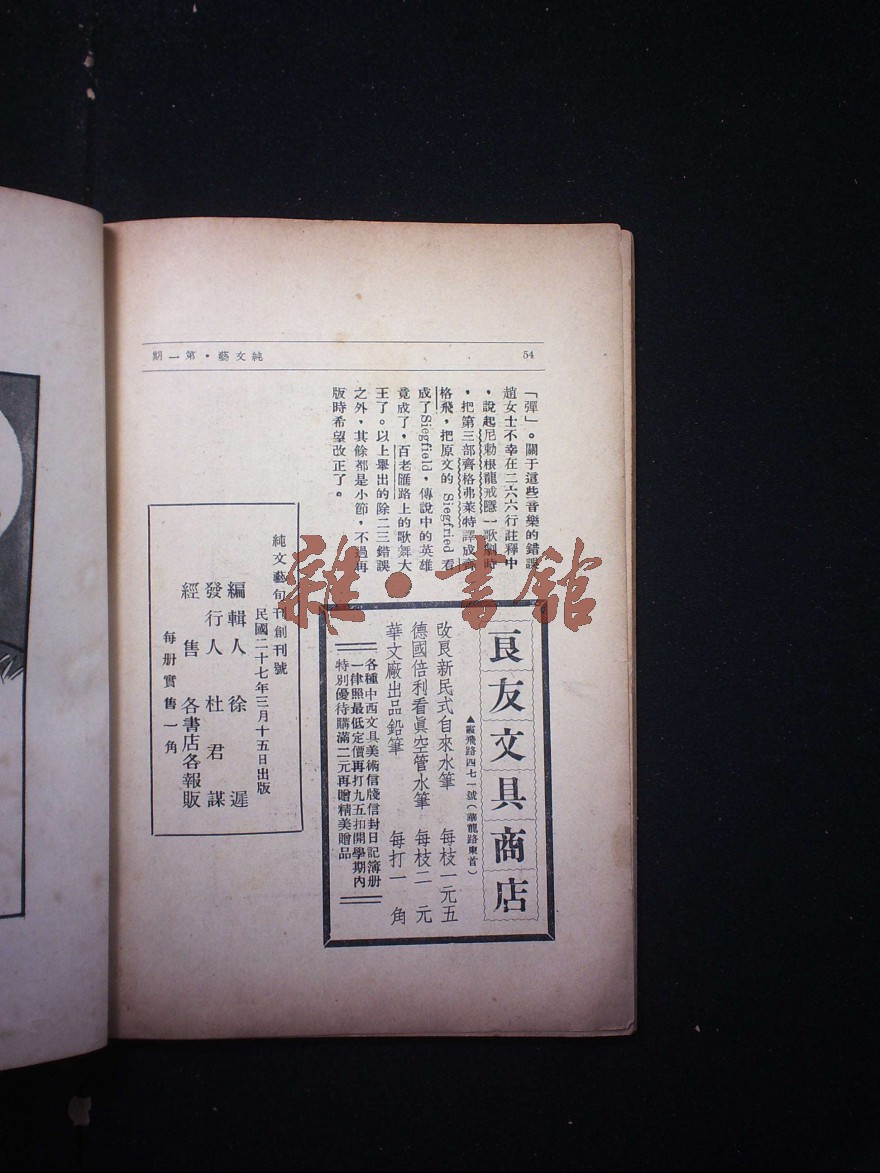 54
純文藝・第一期
「彈」。關于這些音樂的錯誤
趙女士不幸在二六六行註釋中
，說起尼勒根龍戒隱一歌劇時
，把第三部齊格弗萊特譯成齊
格飛，把原文的 Siegfried 看
成了Siegfield，傳說中的英雄
竟成了，百老匯路上的歌舞大
王了。以上舉出的除二三錯誤
之外，其餘都是小節，不過再
版時希望改正了。
良友文具商店
▲霞飛路四七一號（華龍路東首）
改良新民式自來水筆 每枝一元五
德國倍利看眞空管水筆 每枝二元
華文廠出品鉛筆 每打一角
各種中西文具美術信牋信封日記簿册
一律照最低定價再打九五扣開學期內
特別優待購滿二元再贈精美贈品
純文藝旬刊創刊號
民國二十七年三月十五日出版
編輯人 徐遲
發行人 杜君謀
經售 各書店各報販
每册實售一角
雜・書館